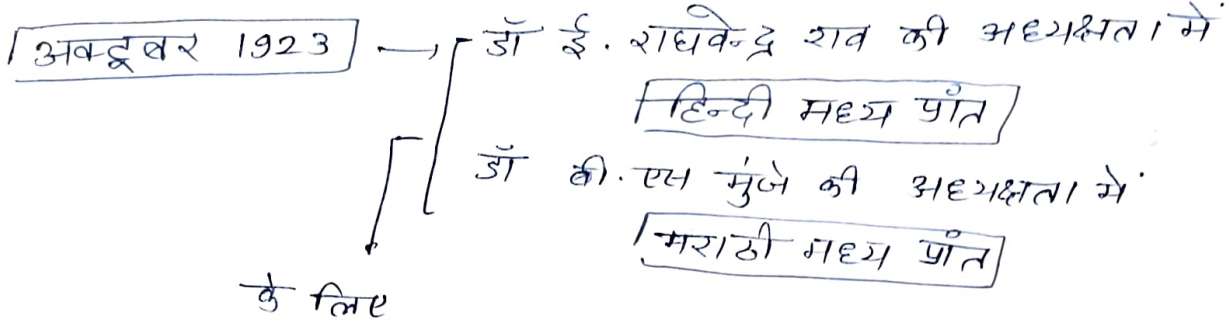 अक्टूबर 1923 → डॉ ई. राघवेन्द्र राव की अध्यक्षता में
हिन्दी मध्य प्रांत
डॉ बी. एस मुंजे की अध्यक्षता में
मराठी मध्य प्रांत
के लिए